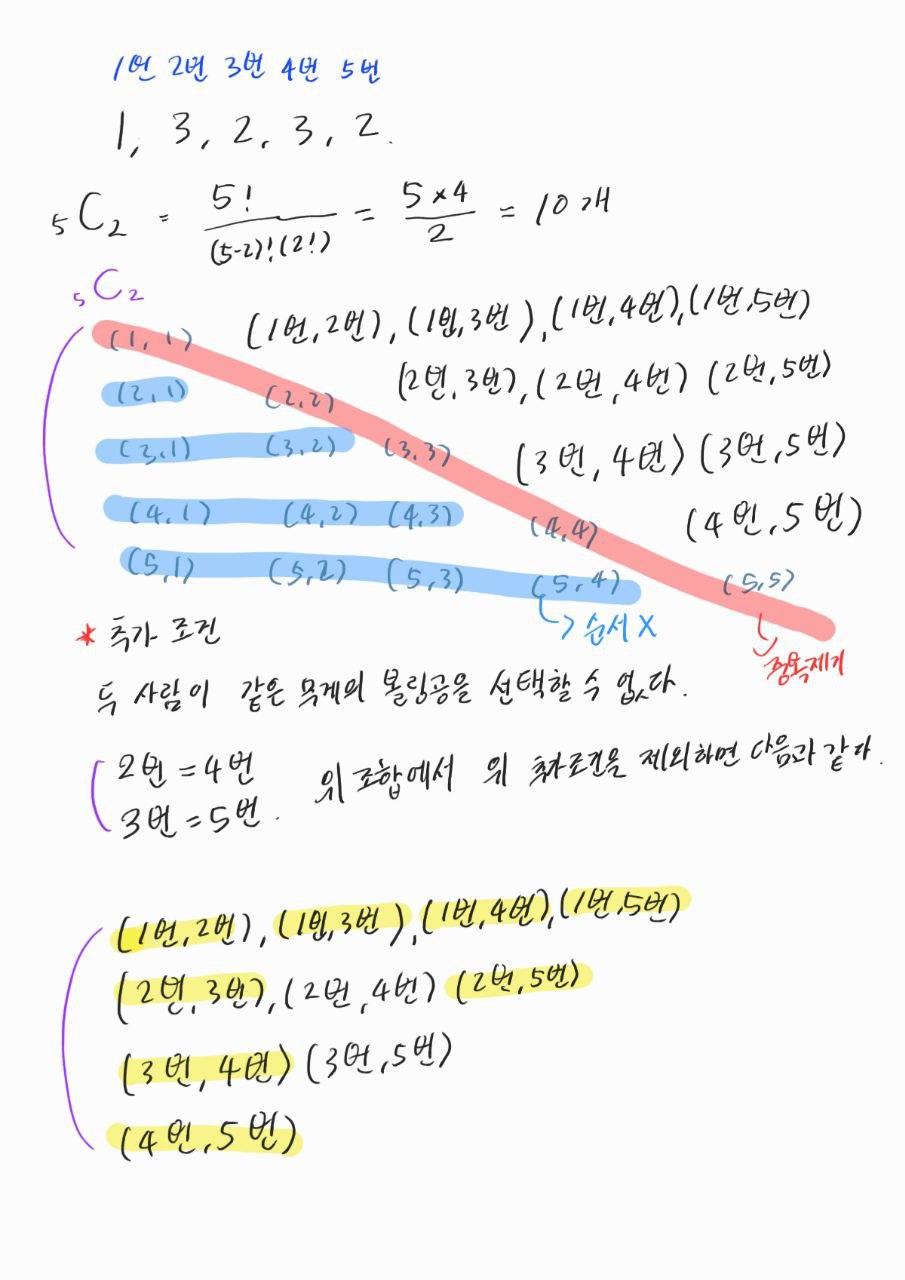 1번 2번 3번 4번 5번
1, 3, 2, 3, 2.
5C2 = 5! / (5-2)!(2!) = 5×4 / 2 = 10개
5C2
(1,1) (1번,2번), (1번,3번), (1번,4번), (1번,5번)
(2,1) (2,2) (2번,3번), (2번,4번) (2번,5번)
(3,1) (3,2) (3,3) (3번,4번) (3번,5번)
(4,1) (4,2) (4,3) (4,4) (4번,5번)
(5,1) (5,2) (5,3) (5,4) (5,5)
* 추가 조건 → 순서 X
중복제거
두 사람이 같은 무게의 볼링공을 선택할 수 없다.
2번 = 4번 위 조합에서 위 추가조건을 제외하면 다음과 같다.
3번 = 5번.
(1번,2번), (1번,3번), (1번,4번), (1번,5번)
(2번,3번), (2번,4번) (2번,5번)
(3번,4번) (3번,5번)
(4번,5번)